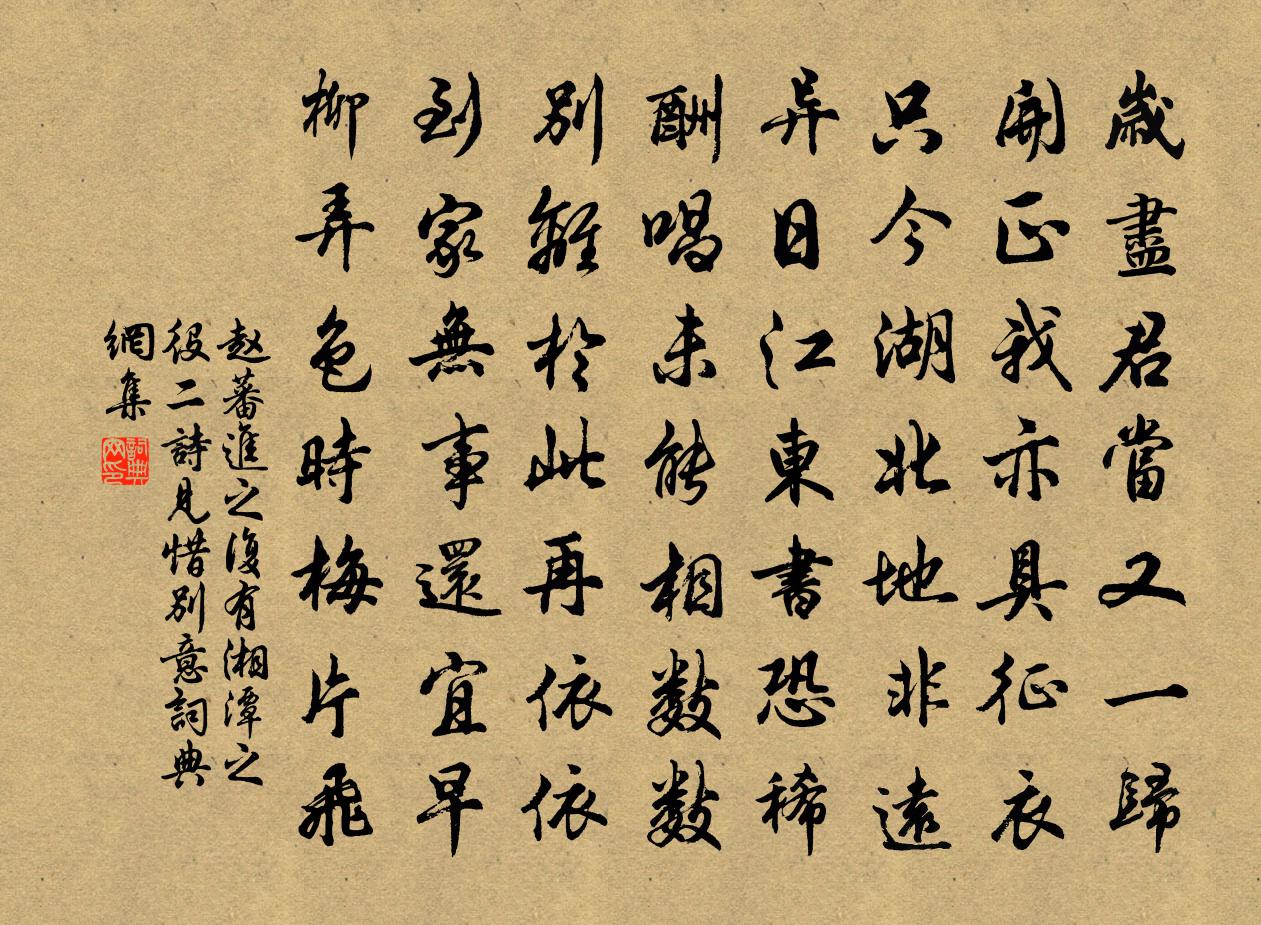 歲盡君當又一歸
開正我亦具征衣
只今湖北地非遠
异日江東書恐稀
酬唱未能相數數
別離於此再依依
到家無事還宜早
柳弄色時梅片飛
赵蕃進之復有湘潭之
役二詩見惜別意詞典
網集
詞典网印